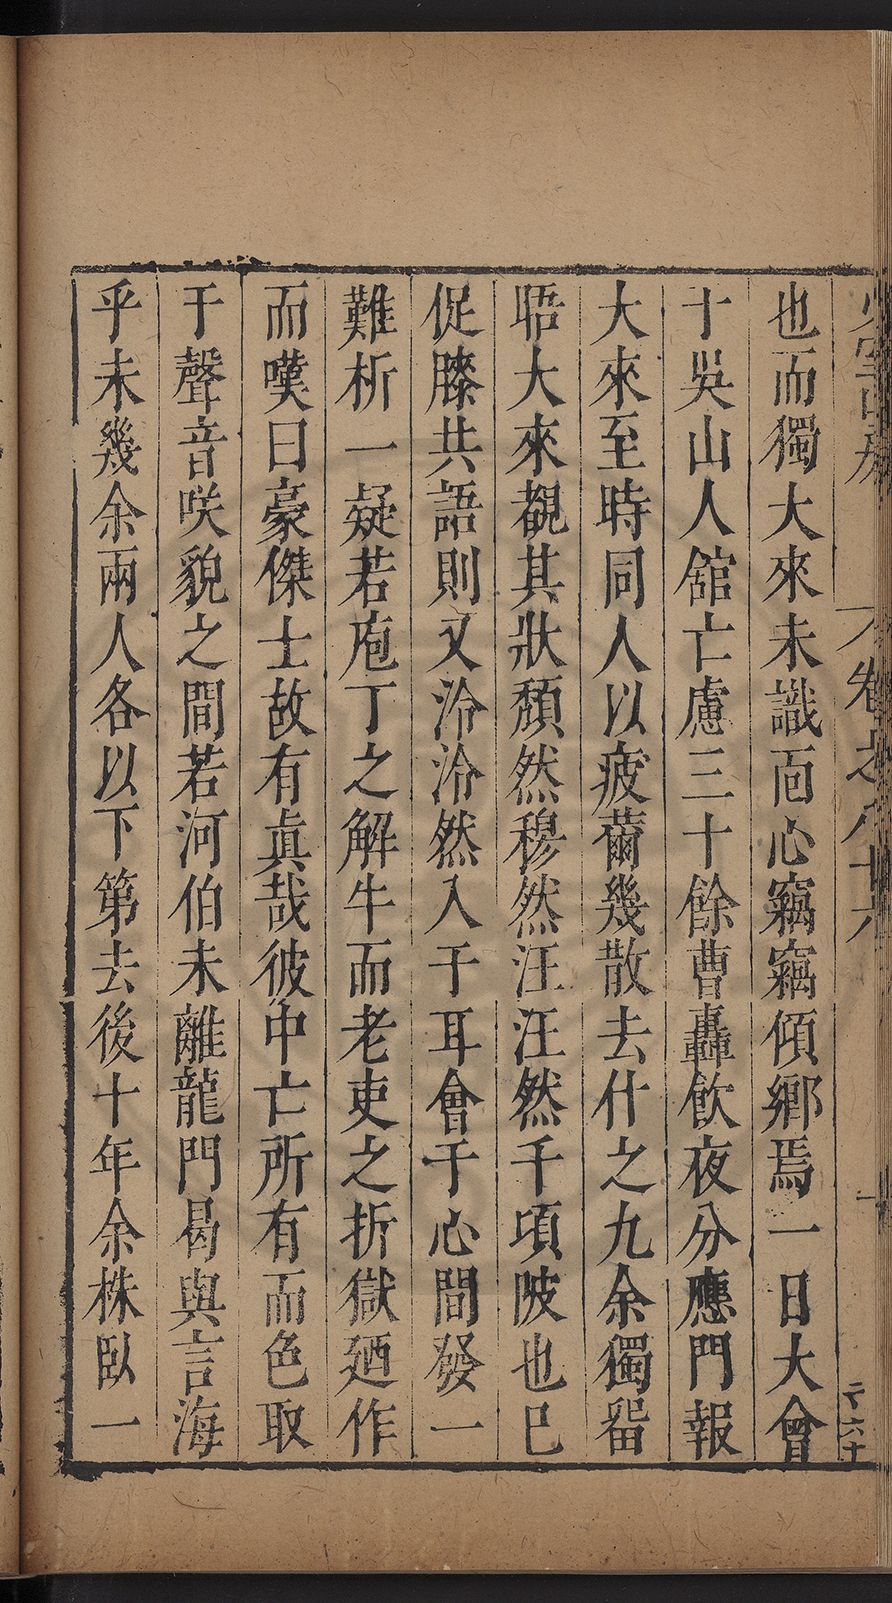 卷之八十六
也而獨大來未識面心竊竊傾鄉焉一日大會
十吳山人舘亡慮三十餘曹轟飲夜分應門報
大來至時同人以疲薾幾散去什之九余獨留
晤大來覩其狀頹然穆然汪汪然千頃陂也已
促膝共語則又泠泠然入于耳會于心間發一
難析一疑若庖丁之解牛而老吏之折獄廼作
而嘆曰豪傑士故有眞哉彼中亡所有而色取
于聲音咲貌之間若河伯未離龍門曷與言海
乎未幾余兩人各以下第去後十年余株臥一